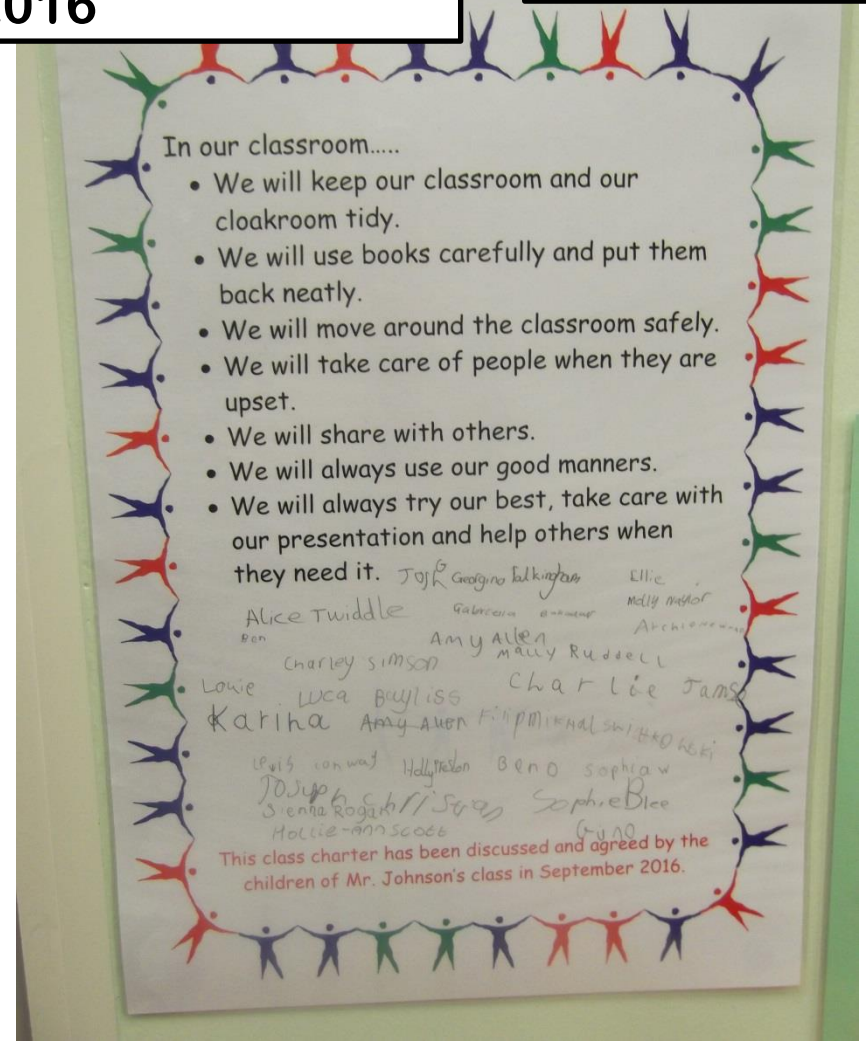 2016
In our classroom.....
• We will keep our classroom and our
cloakroom tidy.
• We will use books carefully and put them
back neatly.
• We will move around the classroom safely.
• We will take care of people when they are
upset.
• We will share with others.
• We will always use our good manners.
• We will always try our best, take care with
our presentation and help others when
they need it. Josh Georgina Ellie
Molly
Alice Twiddle
Ben Amy Allen
Molly Ruddell
Charley Simson
Louie Luca Bayliss Charlie
Karina Amy Allen Filip
conway Holly Beno Sophia w
Joseph Sophie Blee
Sienna
Hollie-Ann Scott
This class charter has been discussed and agreed by the
children of Mr. Johnson's class in September 2016.